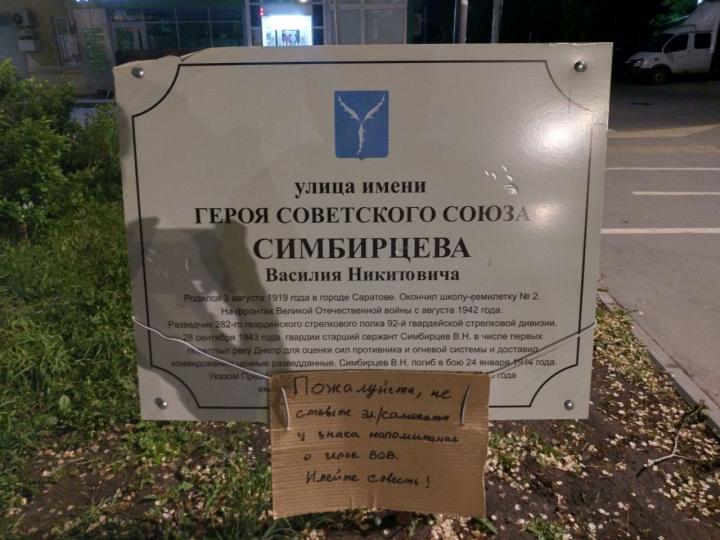 улица имени
ГЕРОЯ СОВЕТСКОГО СОЮЗА
СИМБИРЦЕВА
Василия Никитовича
Родился 3 августа 1919 года в городе Саратове. Окончил школу-семилетку № 2.
На фронтах Великой Отечественной войны с августа 1942 года.
Разведчик 282-го гвардейского стрелкового полка 92-й гвардейской стрелковой дивизии.
28 сентября 1943 года гвардии старший сержант Симбирцев В.Н. в числе первых
переплыл реку Днепр для оценки сил противника и огневой системы и доставил
командованию ценные разведданные. Симбирцев В.Н. погиб в бою 24 января 1944 года.
Указом През года
Пожалуйста, не
ставьте эл/самокаты
у знака напоминания
о герое ВОВ.
Имейте совесть!